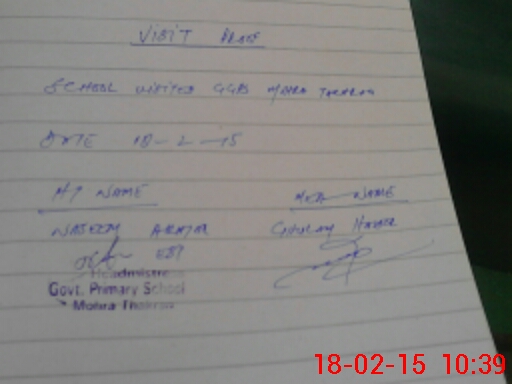 VISIT PROOF
SCHOOL VISITED GGPS MOHRA THAKRAN
DATE 18-2-15
HT NAME
MEA NAME
NASEEM AKHTAR
GHULAM HAIDER
EST
Headmistress
Govt. Primary School
Mohra Thakran
18-02-15 10:39